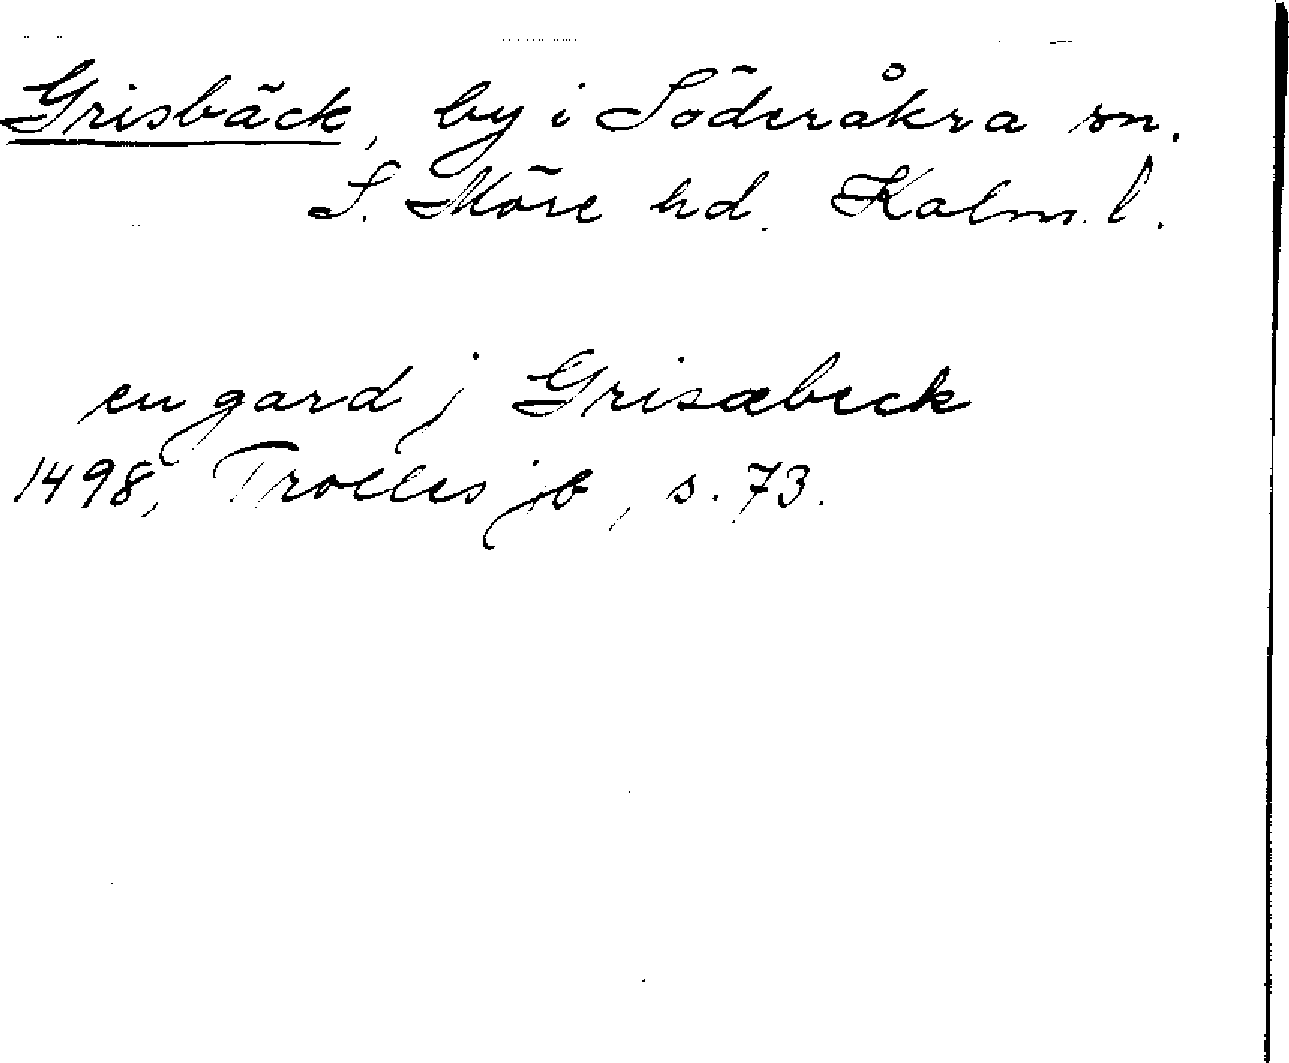 Grisbäck, by i Söderåkra sn.
S. Möre hd. Kalm. l.
en gard j Grisæbeck
1498, Trolles jb, s. 73.